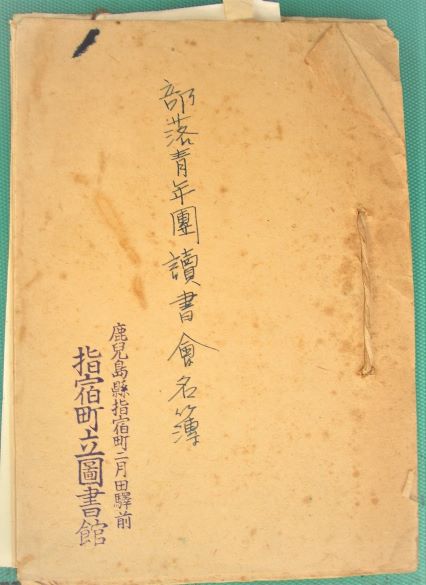 部落青年團讀書會名簿
鹿兒島縣指宿町二月田驛前
指宿町立圖書館